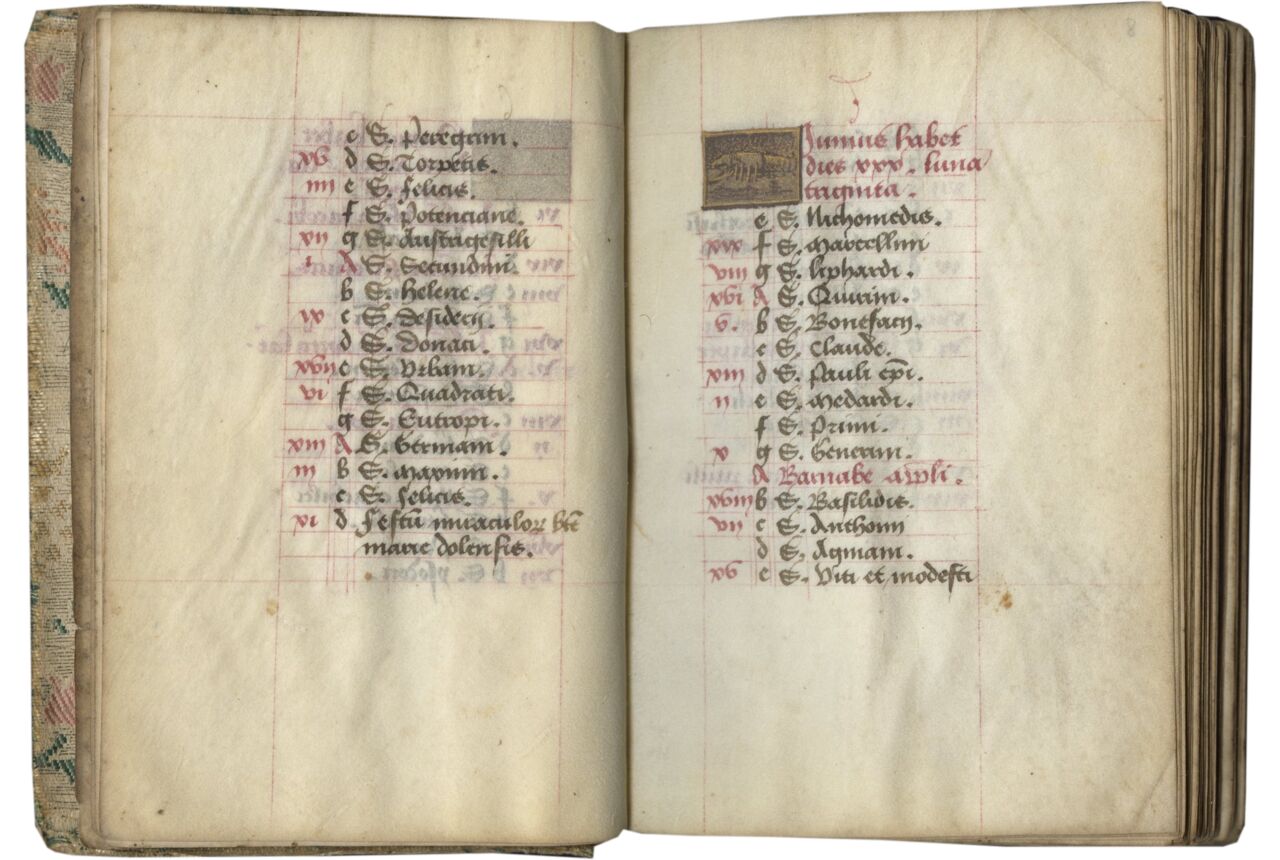 c S. Peregrini.
xv d S. Torpetis.
iiii e S. felicis.
f S. Potenciane.
xii g S. Austregesilli
i A S. Secundini
b S. helene.
ix c S. desiderij.
d S. Donati.
xvii e S. Urbani.
vi f S. Quadrati.
g S. Eutropi.
xiiii A S. Germani.
iii b S. maximi.
c S. felicis.
xi d festū miraculoꝝ btē
marie dolensis.
8
Iunius habet
dies xxx. luna
triginta.
e S. Nichomedis.
xix f S. marcellini
viii g S. liphardi.
xvi A S. Quirini.
v. b S. Bonefacij.
c S. Claude.
xiii d S. Pauli ep̄i.
ii e S. medardi.
f S. Primi.
x g S. Generani.
A Barnabe apl̄i.
xviii b S. Basilidis.
vii c S. Anthonii
d S. Agniani.
xv e S. Viti et modesti